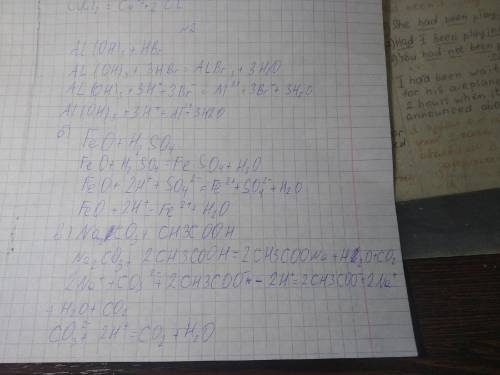 №2
AL(OH)3 + HBr
AL(OH)3 + 3HBr = ALBr3 + 3H2O
AL(OH)3 + 3H+ + 3Br- = Al3+ + 3Br- + 3H2O
Al(OH)3 + 3H+ = Al3+ 3H2O
б)
FeO + H2SO4
FeO + H2SO4 = FeSO4 + H2O
FeO + 2H+ + SO4 2- = Fe2+ + SO4 2- + H2O
FeO + 2H+ = Fe2+ + H2O
в) Na2CO3 + CH3COOH
Na2CO3 + 2CH3COOH = 2CH3COONa + H2O + CO2
2Na+ + CO3 2- + 2CH3COO- 2H+ = 2CH3COO- + 2Na+
+ H2O + CO2
CO3 2- + 2H+ = CO2 + H2O
She had been play
Had I been playing
You had not been
I had been wait
for his airplane
2 hours when i
announced a